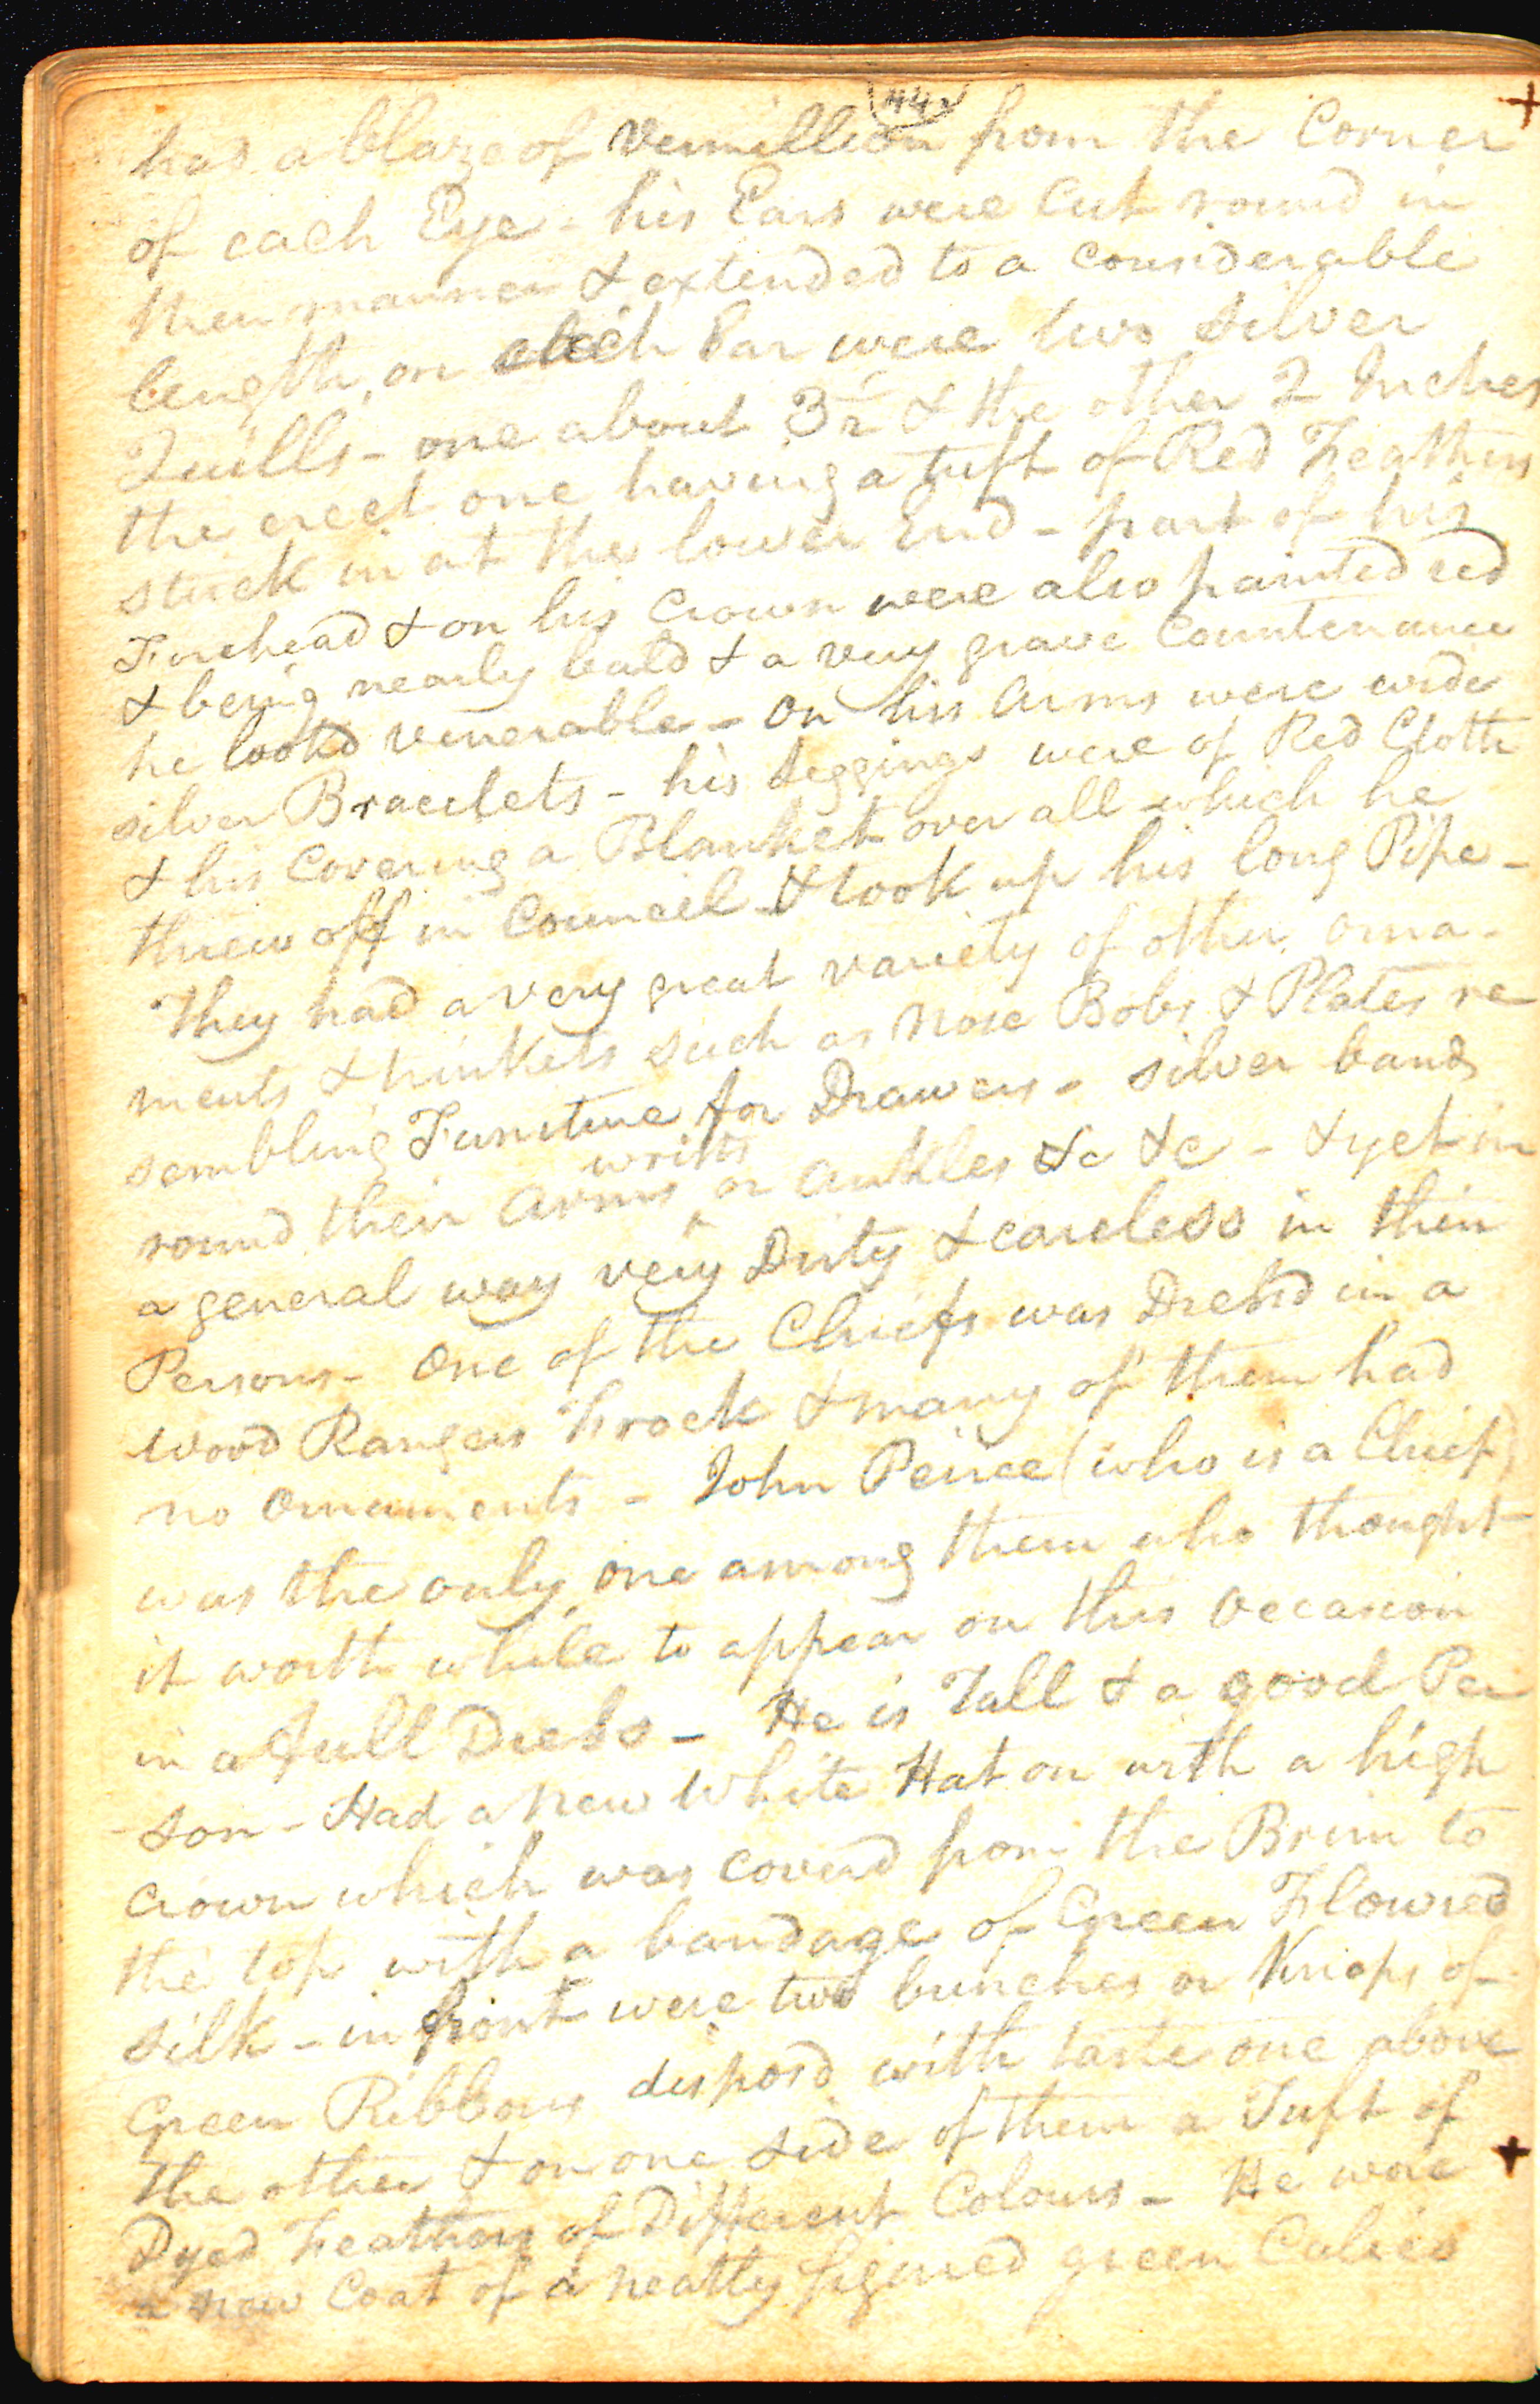 44
has a blaze of Vermillion from the Corner
of each Eye - his Ears were Cut round in
their manner & extended to a Considerable
length, on each Ear were two silver
Quills - one about 3½ & the other 2 Inches
the erect one having a tuft of Red Feathers
stuck in at the lower End - part of his
Forehead & on his Crown were also painted red
& being nearly bald & a very grave Countenance
he look'd venerable - on his Arms were wide
silver Bracelets - his leggings were of Red Cloth
& his Covering a Blanket over all which he
threw off in Council & took up his long Pipe -
They had a very great variety of other orna-
ments & trinkets such as Nose Bobs & Plates re
sembling Furniture for Drawers - silver bands
wrists
round their Arms ^ or Ankles &c &c - & yet in
a general way very Dirty & careless in their
Persons - One of the Chiefs was Dress'd in a
Wood Rangers Frock & many of them had
no Ornaments - John Peirce (who is a Chief)
was the only one among them who thought
it worth while to appear on this Occasion
in a full Dress - He is Tall & a good Per
son - Had a new White Hat on with a high
Crown which was coverd from the Brim to
the top with a bandage of Green Flowred
silk - in front were two bunches or Knops of
Green Ribbons dispos'd with taste one above
the other & on one side of them a Tuft of
Dyed Feathers of Different Colours - He wore
a new Coat of a neatly figured green Calico